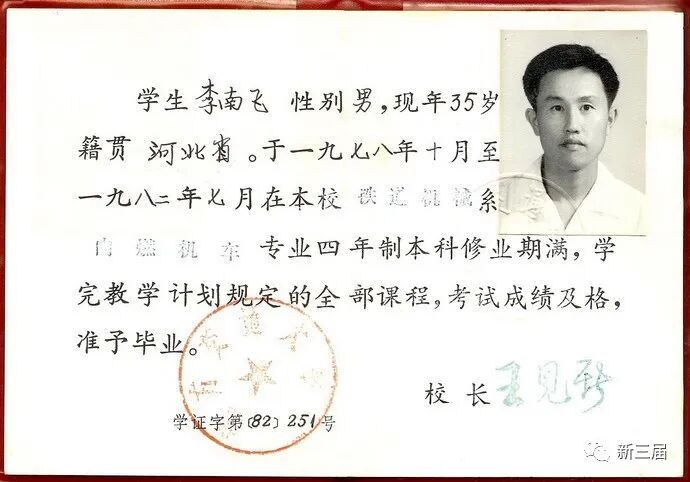 学生李南飞 性别男，现年35岁
籍贯 河北省。于一九七八年十月至
一九八二年七月在本校 铁道机械系
内燃机车 专业四年制本科修业期满，学
完教学计划规定的全部课程，考试成绩及格，
准予毕业。
校长 王见新
学证字第〔82〕251号
新三届